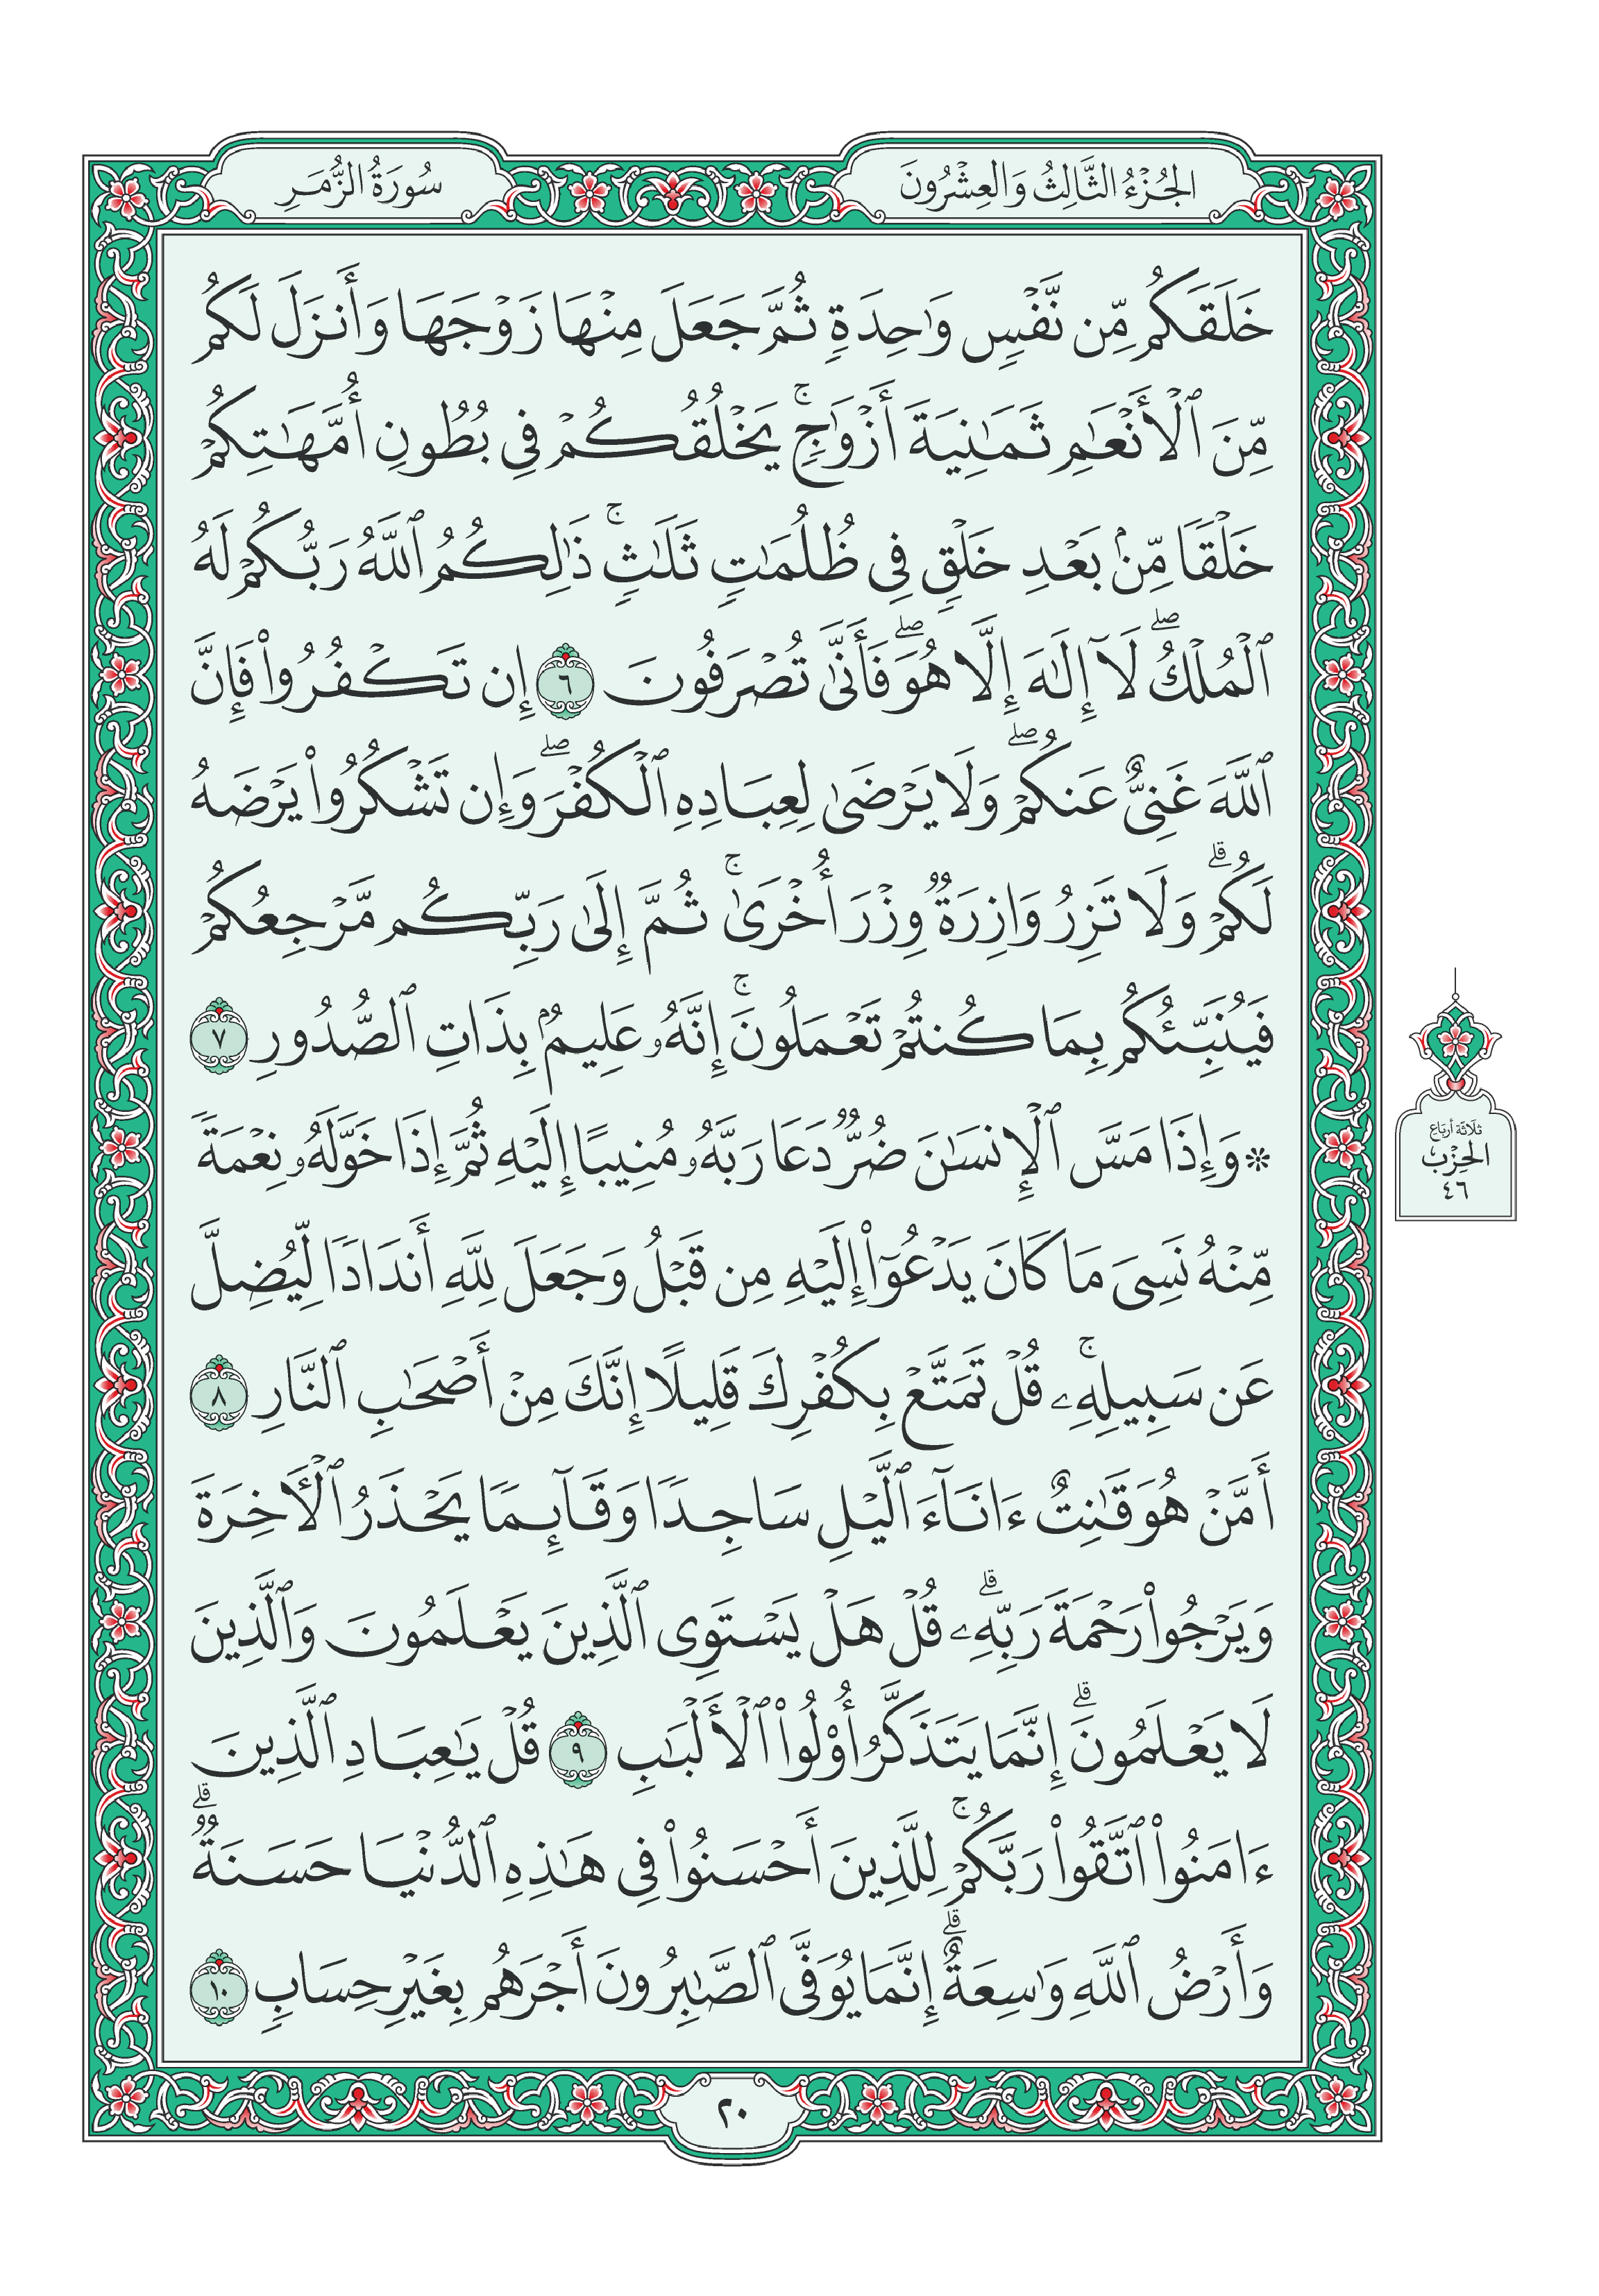 الجُزْءُ الثَّالِثُ وَالعِشْرُونَ
سُورَةُ الزُّمَرِ
خَلَقَكُم مِّن نَّفْسٍ وَٰحِدَةٍ ثُمَّ جَعَلَ مِنْهَا زَوْجَهَا وَأَنزَلَ لَكُم
مِّنَ ٱلْأَنْعَٰمِ ثَمَٰنِيَةَ أَزْوَٰجٍۚ يَخْلُقُكُمْ فِي بُطُونِ أُمَّهَٰتِكُمْ
خَلْقًا مِّنۢ بَعْدِ خَلْقٍ فِي ظُلُمَٰتٍ ثَلَٰثٍۚ ذَٰلِكُمُ ٱللَّهُ رَبُّكُمْ لَهُ
ٱلْمُلْكُۖ لَآ إِلَٰهَ إِلَّا هُوَۖ فَأَنَّىٰ تُصْرَفُونَ ٦ إِن تَكْفُرُوا۟ فَإِنَّ
ٱللَّهَ غَنِيٌّ عَنكُمْۖ وَلَا يَرْضَىٰ لِعِبَادِهِ ٱلْكُفْرَۖ وَإِن تَشْكُرُوا۟ يَرْضَهُ
لَكُمْۗ وَلَا تَزِرُ وَازِرَةٌ وِزْرَ أُخْرَىٰۚ ثُمَّ إِلَىٰ رَبِّكُم مَّرْجِعُكُمْ
فَيُنَبِّئُكُم بِمَا كُنتُمْ تَعْمَلُونَۚ إِنَّهُۥ عَلِيمٌۢ بِذَاتِ ٱلصُّدُورِ ٧
۞ وَإِذَا مَسَّ ٱلْإِنسَٰنَ ضُرٌّ دَعَا رَبَّهُۥ مُنِيبًا إِلَيْهِ ثُمَّ إِذَا خَوَّلَهُۥ نِعْمَةً
مِّنْهُ نَسِيَ مَا كَانَ يَدْعُوٓا۟ إِلَيْهِ مِن قَبْلُ وَجَعَلَ لِلَّهِ أَندَادًا لِّيُضِلَّ
عَن سَبِيلِهِۦۚ قُلْ تَمَتَّعْ بِكُفْرِكَ قَلِيلًا إِنَّكَ مِنْ أَصْحَٰبِ ٱلنَّارِ ٨
أَمَّنْ هُوَ قَٰنِتٌ ءَانَآءَ ٱلَّيْلِ سَاجِدًا وَقَآئِمًا يَحْذَرُ ٱلْأٓخِرَةَ
وَيَرْجُوا۟ رَحْمَةَ رَبِّهِۦۗ قُلْ هَلْ يَسْتَوِي ٱلَّذِينَ يَعْلَمُونَ وَٱلَّذِينَ
لَا يَعْلَمُونَۗ إِنَّمَا يَتَذَكَّرُ أُو۟لُوا۟ ٱلْأَلْبَٰبِ ٩ قُلْ يَٰعِبَادِ ٱلَّذِينَ
ءَامَنُوا۟ ٱتَّقُوا۟ رَبَّكُمْۚ لِلَّذِينَ أَحْسَنُوا۟ فِي هَٰذِهِ ٱلدُّنْيَا حَسَنَةٌۗ
وَأَرْضُ ٱللَّهِ وَٰسِعَةٌۗ إِنَّمَا يُوَفَّى ٱلصَّٰبِرُونَ أَجْرَهُم بِغَيْرِ حِسَابٍ ١٠
ثلاثة أرباع
الحِزْب
٤٦
٢٠